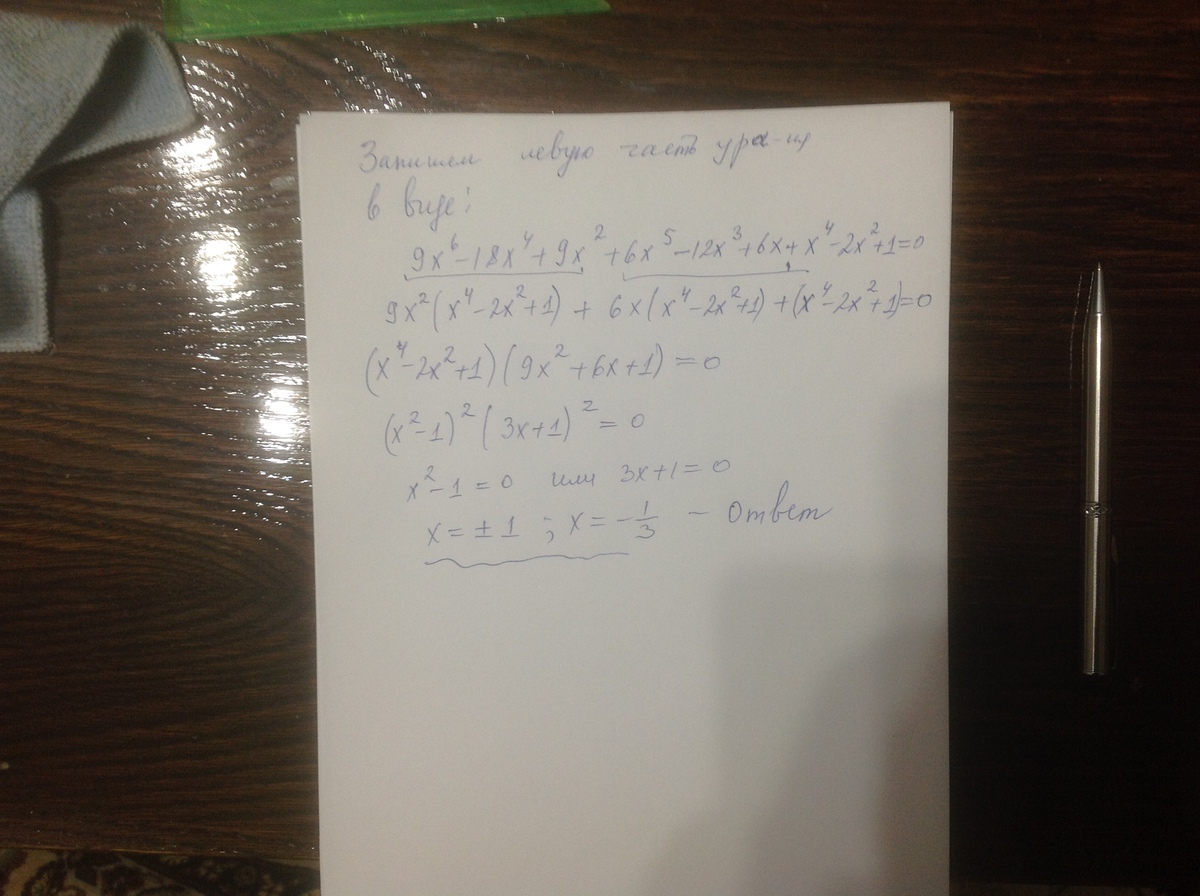 Запишем левую часть ура-ия
в виде:
9x⁶-18x⁴+9x²+6x⁵-12x³+6x+x⁴-2x²+1=0
9x²(x⁴-2x²+1) + 6x(x⁴-2x²+1)+(x⁴-2x²+1)=0
(x⁴-2x²+1)(9x²+6x+1)=0
(x²-1)²(3x+1)²=0
x²-1=0 или 3x+1=0
x=±1 ; x=-1/3 - Ответ